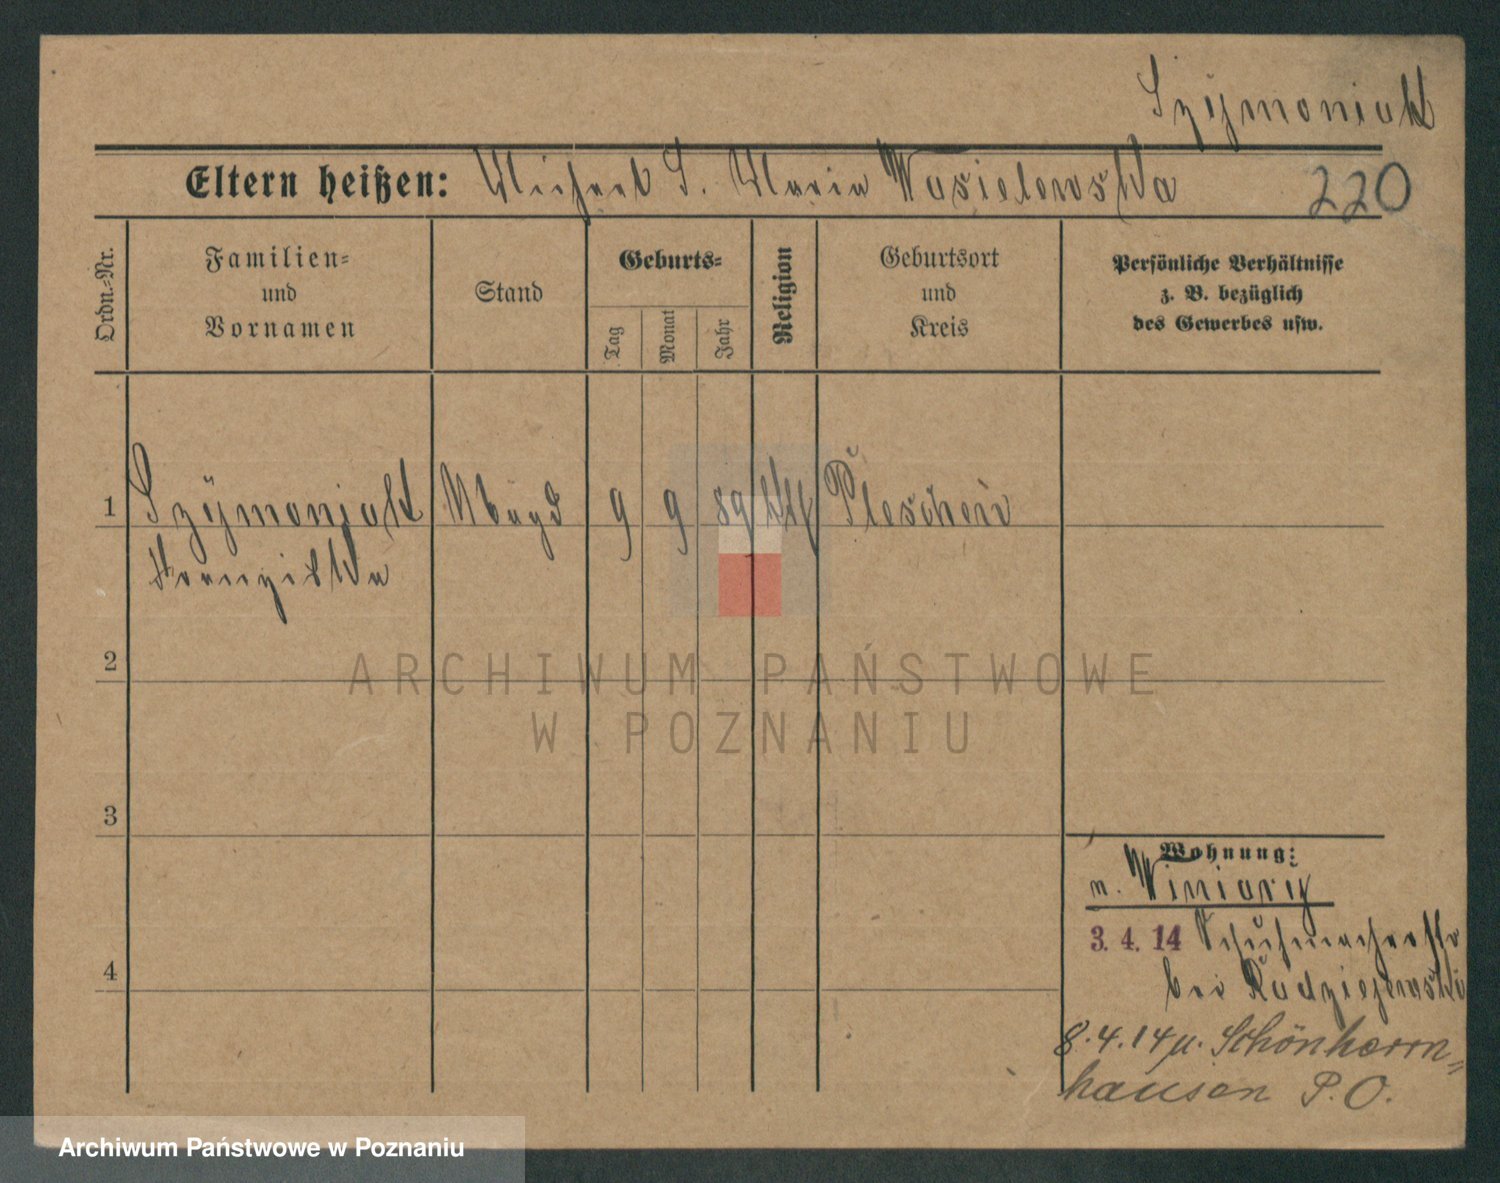 Szymoniak
Eltern heißen: Michael S. Maria Wasielewska
220
Ordn.-Nr.
Familien-
und
Vornamen
Stand
Geburts-
Tag
Monat
Jahr
Religion
Geburtsort
und
Kreis
Persönliche Verhältnisse
z. B. bezüglich
des Gewerbes usw.
1 Szymoniak Magd 9 9 89 kth Pleschen
Franziska
2
3
4
Wohnung:
n. Winiary
3. 4. 14 Schuhmacherstr
bei Radziejewski
8.4.14 n. Schönherrn=
hausen P.O.
ARCHIWUM PAŃSTWOWE
W POZNANIU
Archiwum Państwowe w Poznaniu